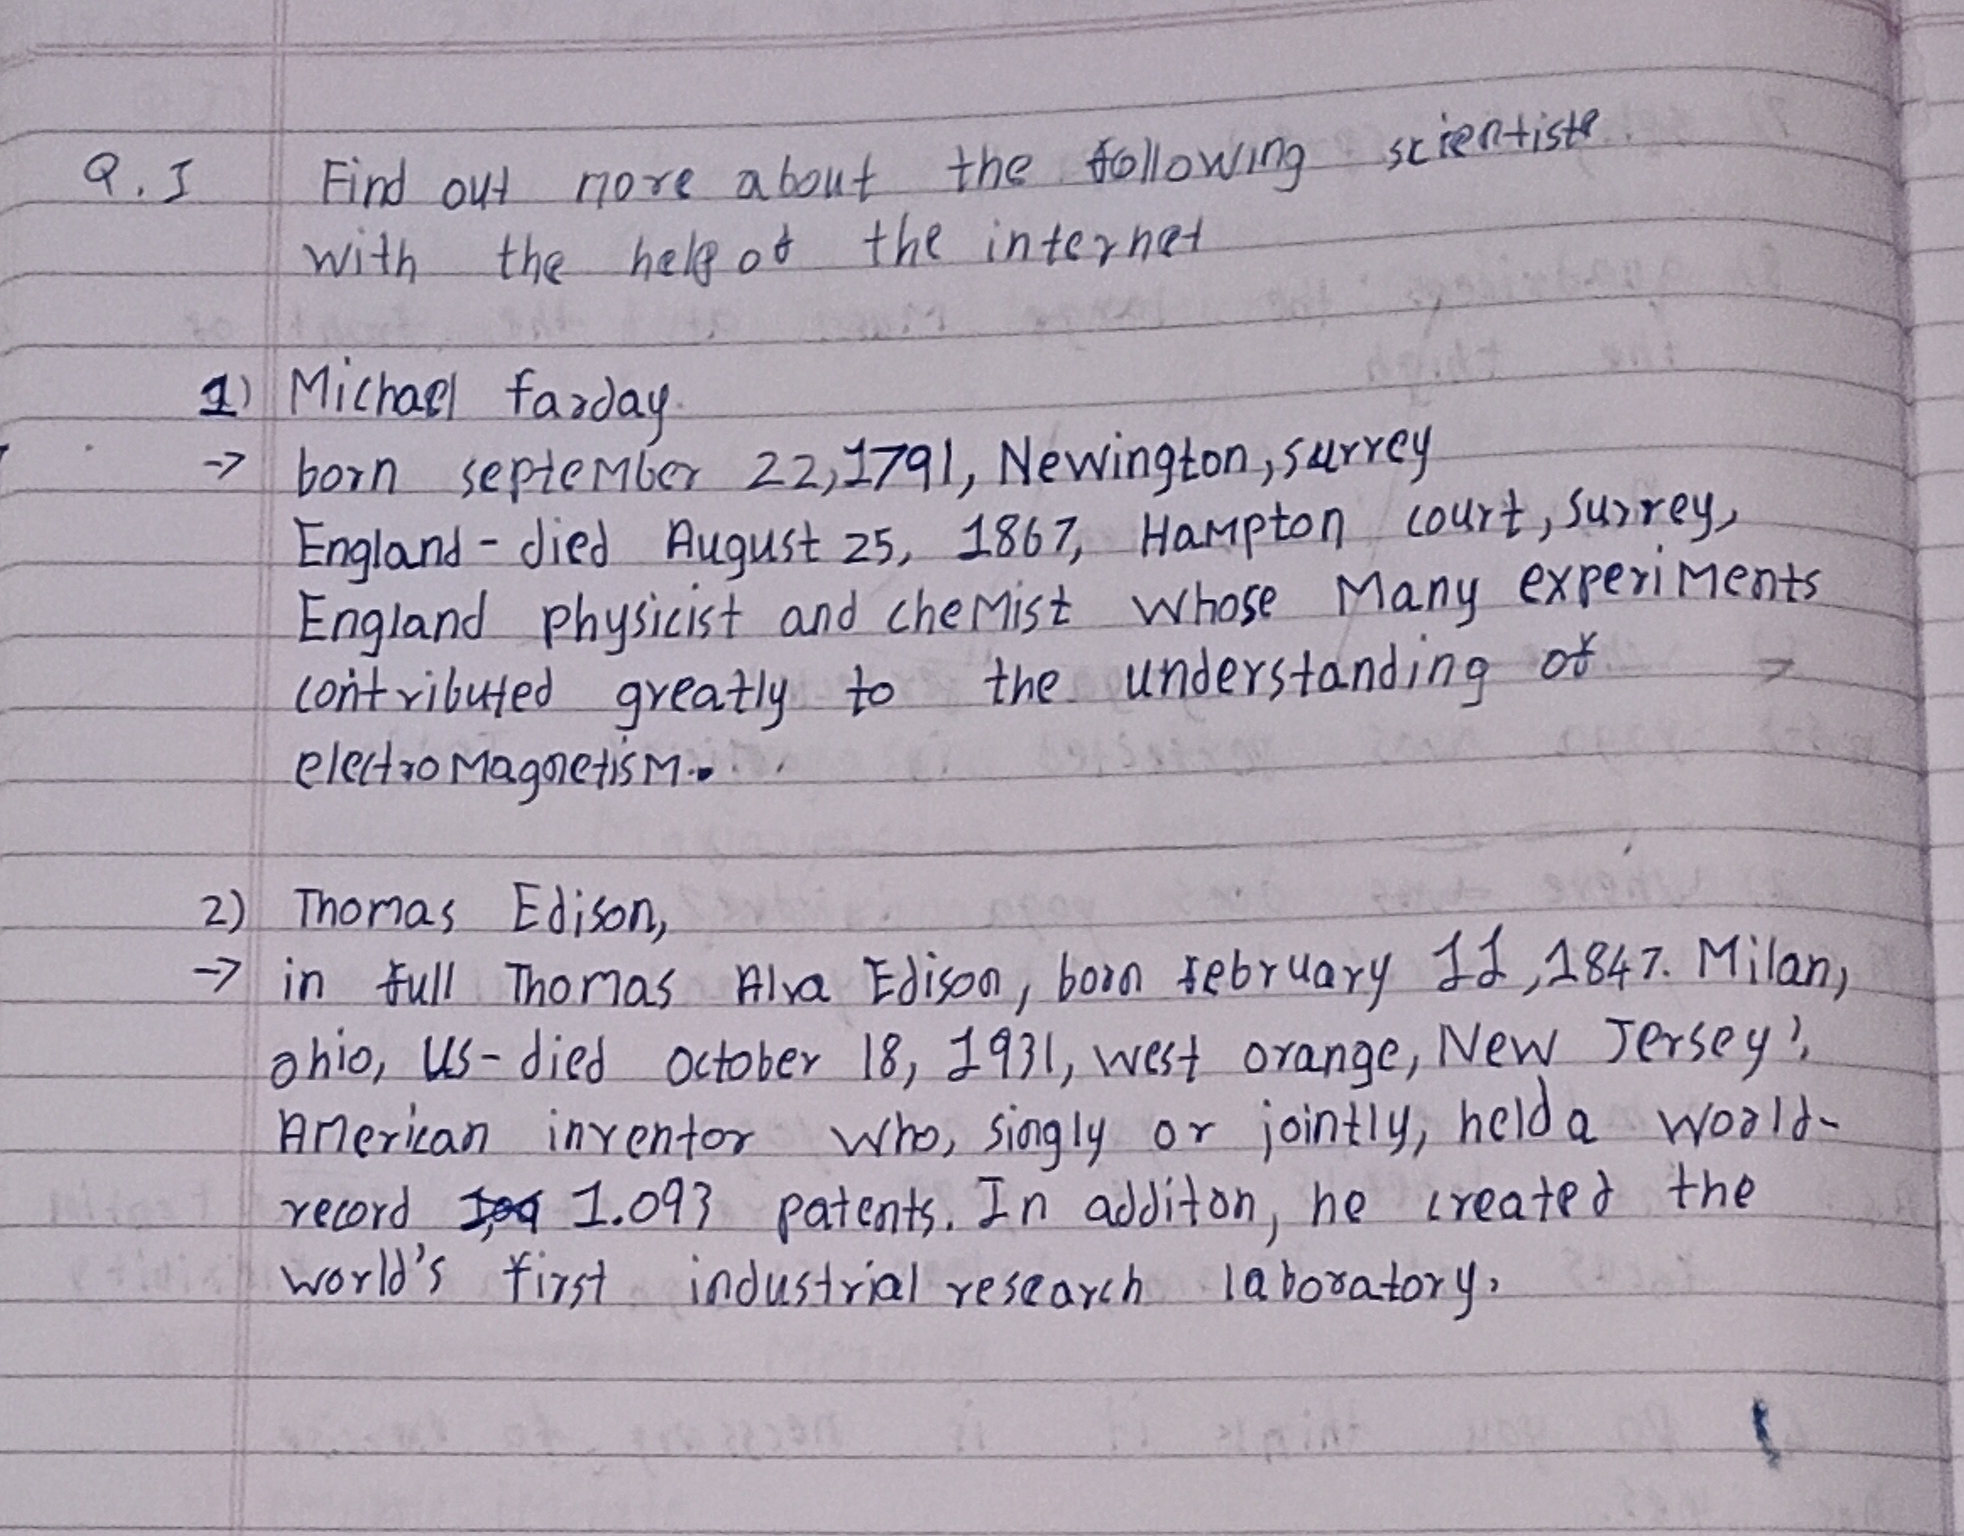 Q.1 Find out more about the following scientists
with the help of the internet
1) Michael farday.
→ born september 22,1791, Newington, surrey
England - died August 25, 1867, Hampton court, surrey,
England physicist and chemist whose Many experiments
contributed greatly to the understanding of
electroMagnetisM.
2) Thomas Edison,
→ in full Thomas Alva Edison, born february 11,1847. Milan,
ohio, US - died october 18, 1931, west orange, New Jersey,
American inventor who, singly or jointly, held a world-
record 1.093 patents. In additon, he created the
world's first industrial research laboratory.